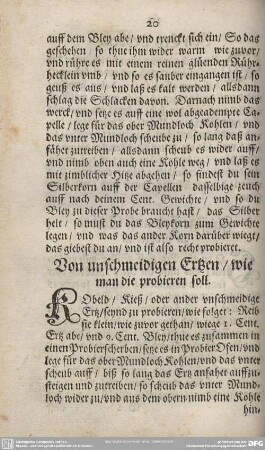 20
auff dem Bley abe / vnd trenckt sich ein / So das
geschehen / so thue ihm wider warm wie zuvor /
vnd rühre es mit einem reinen glüenden Rühr-
hecklein vmb / vnd so es sauber eingangen ist / so
geuß es aus / vnd laß es kalt werden / allsdann
schlag die Schlacken davon. Darnach nimb das
werck / vnd setze es auff eine wol abgeadempte Ca-
pelle / lege für das ober Mundloch Kohlen / vnd
das vnter Mundloch scheube zu / so lang daß an-
fähet zutreiben / allsdann scheub es wider auff /
vnd nimb oben auch eine Kohle weg / vnd laß es
mit zimblicher Hitze abgehen / so findest du sein
Silberkorn auff der Capellen dasselbige zeuch
auch nach deinem Cent. Gewichte / vnd so du
Bley zu dieser Probe braucht hast / das Silber
helt / so must du das Bleykorn zum Gewichte
legen / vnd was das ander Korn darüber wiegt /
das giebest du an / vnd ist also recht probieret.
Von unschmeidigen Ertzen / wie
man die probieren soll.
KObeld / Kieß / oder ander vnschmeidige
Ertz / seynd zu probieren / wie folget: Reib
sie klein / wie zuvor gethan / wiege 1. Cent.
Ertz abe / vnd 9. Cent. Bley / thue es zusammen in
einen Probierscherben / setze es in Probier Ofen / vnd
lege für das ober Mundloch Kohlen / vnd das vnter
scheub auff / biß so lang das Ertz anfahet auffzu-
steigen und zutreiben / so scheub das vnter Mund-
loch wider zu / vnd aus dem obern nimb eine Kohle
hin-